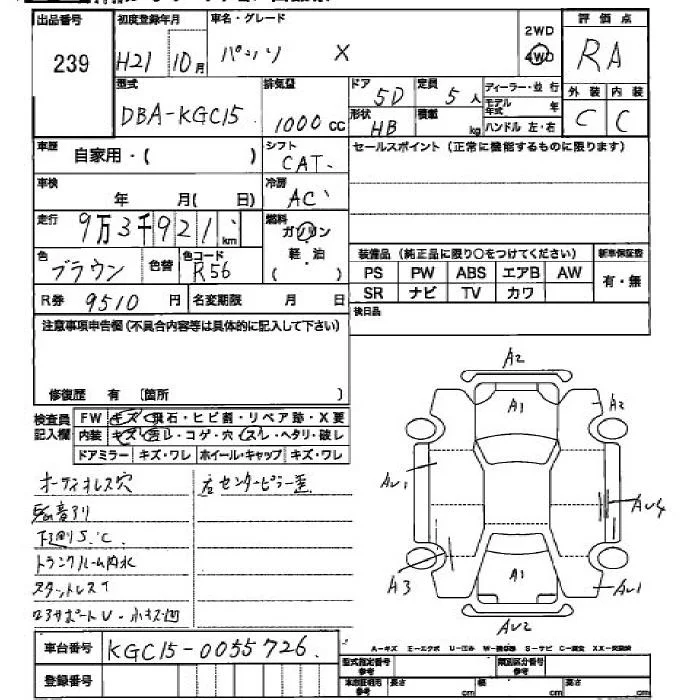 出品番号 239
初度登録年月 H21 10月
車名・グレード パッソ X
2WD
4WD
評価点 RA
外装 内装
C C
型式 DBA-KGC15
排気量 1000cc
ドア 5D
定員 5人
形状 HB
積載 kg
ディーラー・並行
モデル年式 年
ハンドル 左・右
車歴 自家用・( )
シフト CAT
セールスポイント(正常に機能するものに限ります)
車検 年 月( 日)
冷房 AC
走行 9万3千921km
燃料 ガソリン
軽・油
( )
色 ブラウン
色替
色コード R56
装備品(純正品に限り○をつけてください)
新車保証書
PS PW ABS エアB AW
有・無
SR ナビ TV カワ
R券 9510円
名変期限 月 日
後日品
注意事項申告欄(不具合内容等は具体的に記入して下さい)
修復歴 有 [箇所 ]
検査員記入欄
FW キズ・飛石・ヒビ割・リペア跡・X要
内装 キズ・汚レ・コゲ・穴・スレ・ヘタリ・破レ
ドアミラー キズ・ワレ ホイール・キャップ キズ・ワレ
オーディオレス穴
右センターピラー歪
下廻りS.C
トランクルーム内水
スタットレス
A2
A1
A2
AU1
AU4
A3
A1
AU1
AU2
車台番号 KGC15-0055726
登録番号
A-キズ E-エクボ U-凹み W-補修跡 S-サビ C-腐食 XX-交換済
型式指定番号 参考
類別区分番号 参考
車検証相当 参考 長さ cm 幅 cm 高さ cm